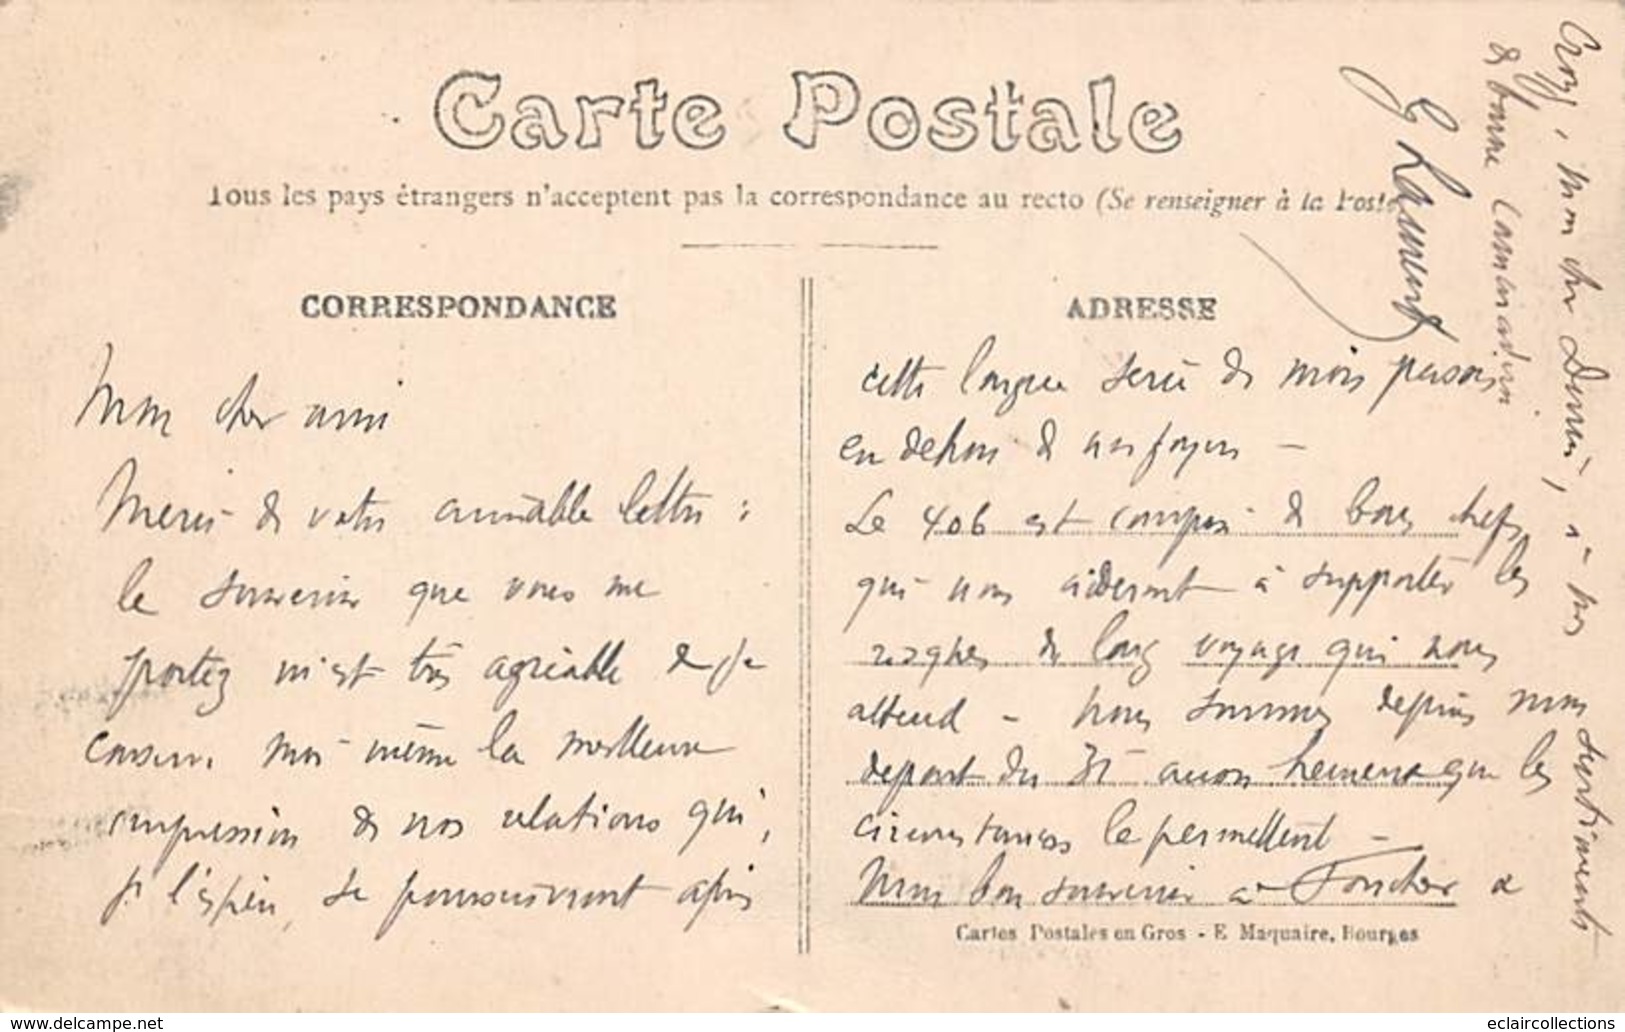 Carte Postale
Tous les pays étrangers n'acceptent pas la correspondance au recto (Se renseigner à la Poste
CORRESPONDANCE
Mon cher ami
Merci de votre aimable lettre :
le souvenir que vous me
portez m'est très agréable & je
conserve moi même la meilleure
impression de nos relations qui,
je l'espère, se poursuivront après
ADRESSE
cette longue série de mois passés
en dehors de nos foyers –
Le 406 est composé de bons chefs
qui nous aideront à supporter les
risques du long voyage qui nous
attend – Nous sommes depuis mon
départ du 31 aussi heureux que les
circonstances le permettent –
Mon bon souvenir à Foucher &
Croyez, mon cher à nos sentiments
de bonne camaraderie
Cartes Postales en Gros - E Maquaire, Bourges
www.delcampe.net
eclaircollections